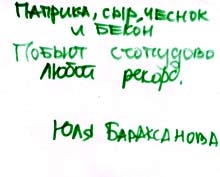 ПАПРИКА, СЫР, ЧЕСНОК
И БЕКОН
ПОБЬЮТ СТОПУДОВО
ЛЮБОЙ РЕКОРД.
ЮЛЯ БАРАКСАНОВА